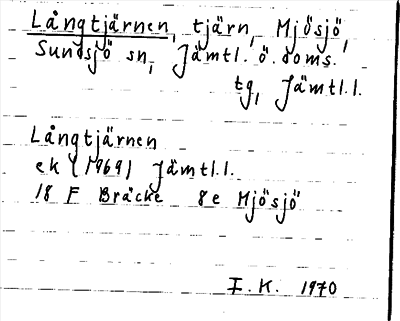 Långtjärnen, tjärn, Mjösjö,
Sundsjö sn, Jämtl. ö. doms.
tg, Jämtl.l.
Långtjärnen
ek (1969) Jämtl.l.
18 F Bräcke 8e Mjösjö
I.K. 1970